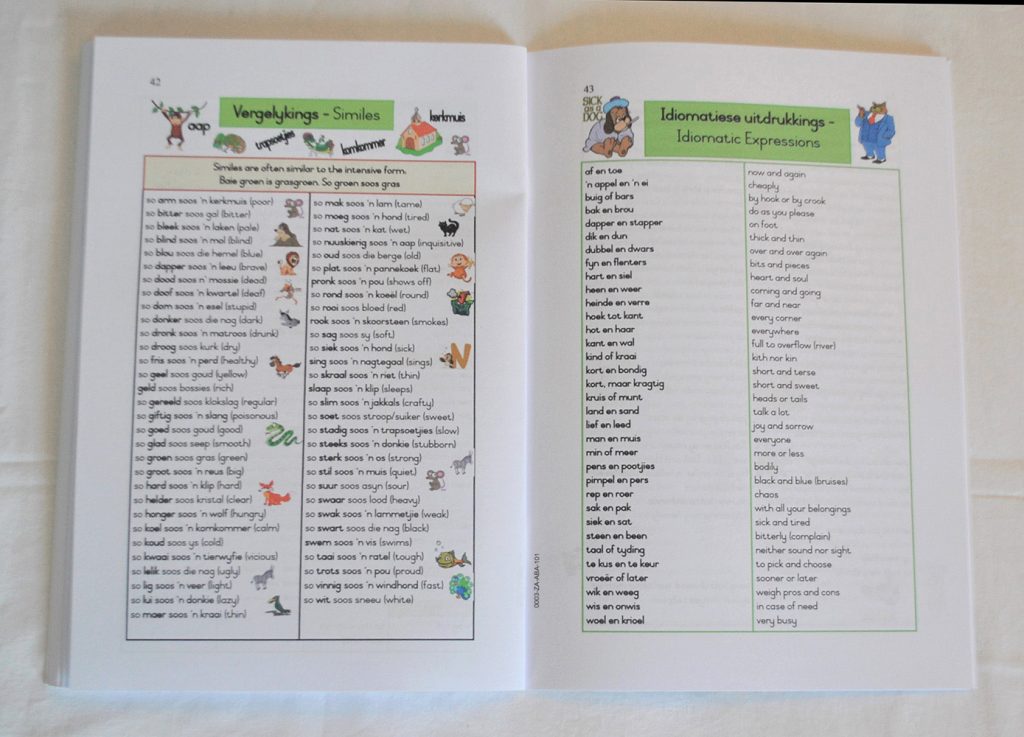 42
Vergelykings - Similes
aap
trapsoetjies
komkommer
kerkmuis
Similes are often similar to the intensive form.
Baie groen is grasgroen. So groen soos gras
so arm soos 'n kerkmuis (poor)
so bitter soos gal (bitter)
so bleek soos 'n laken (pale)
so blind soos 'n mol (blind)
so blou soos die hemel (blue)
so dapper soos 'n leeu (brave)
so dood soos n' mossie (dead)
so doof soos 'n kwartel (deaf)
so dom soos 'n esel (stupid)
so donker soos die nag (dark)
so dronk soos 'n matroos (drunk)
so droog soos kurk (dry)
so fris soos 'n perd (healthy)
so geel soos goud (yellow)
geld soos bossies (rich)
so gereeld soos klokslag (regular)
so giftig soos 'n slang (poisonous)
so goed soos goud (good)
so glad soos seep (smooth)
so groen soos gras (green)
so groot soos 'n reus (big)
so hard soos 'n klip (hard)
so helder soos kristal (clear)
so honger soos 'n wolf (hungry)
so koel soos 'n komkommer (calm)
so koud soos ys (cold)
so kwaai soos 'n tierwyfie (vicious)
so lelik soos die nag (ugly)
so lig soos 'n veer (light)
so lui soos 'n donkie (lazy)
so maer soos 'n kraai (thin)
so mak soos 'n lam (tame)
so moeg soos 'n hond (tired)
so nat soos 'n kat (wet)
so nuuskierig soos 'n aap (inquisitive)
so oud soos die berge (old)
so plat soos 'n pannekoek (flat)
pronk soos 'n pou (shows off)
so rond soos 'n koeël (round)
so rooi soos bloed (red)
rook soos 'n skoorsteen (smokes)
so sag soos sy (soft)
so siek soos 'n hond (sick)
sing soos 'n nagtegaal (sings)
so skraal soos 'n riet (thin)
slaap soos 'n klip (sleeps)
so slim soos 'n jakkals (crafty)
so soet soos stroop/suiker (sweet)
so stadig soos 'n trapsoetjies (slow)
so steeks soos 'n donkie (stubborn)
so sterk soos 'n os (strong)
so stil soos 'n muis (quiet)
so suur soos asyn (sour)
so swaar soos lood (heavy)
so swak soos 'n lammetjie (weak)
so swart soos die nag (black)
swem soos 'n vis (swims)
so taai soos 'n ratel (tough)
so trots soos 'n pou (proud)
so vinnig soos 'n windhond (fast)
so wit soos sneeu (white)
0003-ZA-ABA-101
43
SICK
as a
DOG
Idiomatiese uitdrukkings -
Idiomatic Expressions
af en toe
'n appel en 'n ei
buig of bars
bak en brou
dapper en stapper
dik en dun
dubbel en dwars
fyn en flenters
hart en siel
heen en weer
heinde en verre
hoek tot kant
hot en haar
kant en wal
kind of kraai
kort en bondig
kort, maar kragtig
kruis of munt
land en sand
lief en leed
man en muis
min of meer
pens en pootjies
pimpel en pers
rep en roer
sak en pak
siek en sat
steen en been
taal of tyding
te kus en te keur
vroeër of later
wik en weeg
wis en onwis
woel en krioel
now and again
cheaply
by hook or by crook
do as you please
on foot
thick and thin
over and over again
bits and pieces
heart and soul
coming and going
far and near
every corner
everywhere
full to overflow (river)
kith nor kin
short and terse
short and sweet
heads or tails
talk a lot
joy and sorrow
everyone
more or less
bodily
black and blue (bruises)
chaos
with all your belongings
sick and tired
bitterly (complain)
neither sound nor sight
to pick and choose
sooner or later
weigh pros and cons
in case of need
very busy